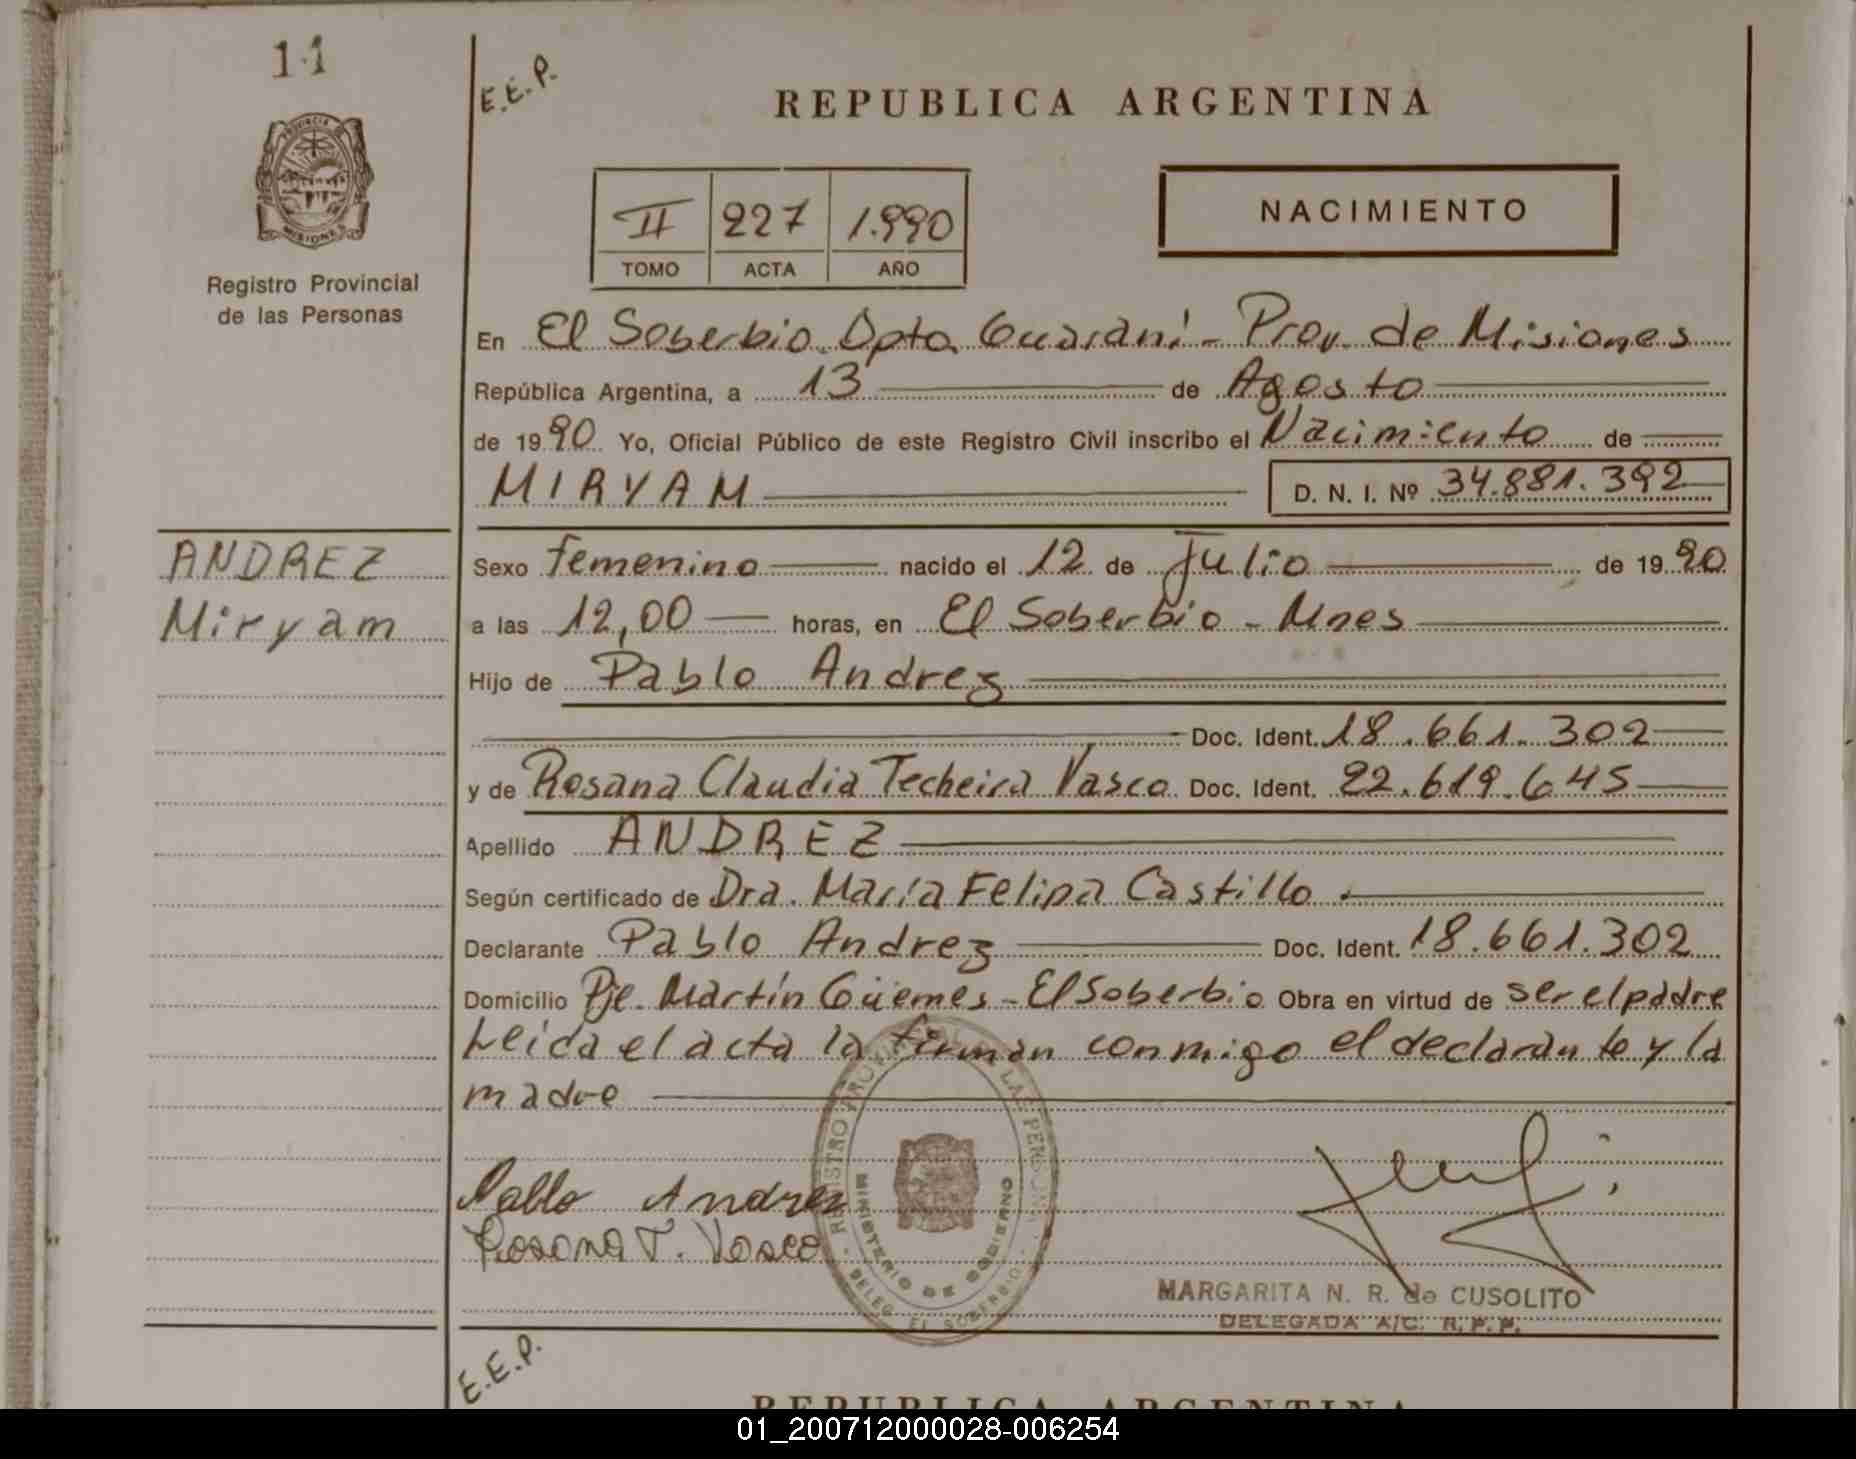 11
E.E.P.
REPUBLICA ARGENTINA
PROVINCIA DE
MISIONES
Registro Provincial
de las Personas
II 227 1.990
TOMO ACTA AÑO
NACIMIENTO
En El Soberbio Dpto Guaraní - Prov. de Misiones
República Argentina, a 13 de Agosto
de 1990 Yo, Oficial Público de este Registro Civil inscribo el Nacimiento de
MIRYAM D. N. I. Nº 34.881.392
ANDREZ
Miryam
Sexo femenino nacido el 12 de Julio de 1990
a las 12,00 horas, en El Soberbio - Mnes
Hijo de Pablo Andrez
Doc. Ident. 18.661.302
y de Rosana Claudia Techeira Vasco Doc. Ident. 22.619.645
Apellido ANDREZ
Según certificado de Dra. María Felipa Castillo
Declarante Pablo Andrez Doc. Ident. 18.661.302
Domicilio Pje. Martín Güemes - El Soberbio Obra en virtud de ser el padre
Leida el acta la firman conmigo el declarante y la
madre
Pablo Andrez
Rosana T. Vasco
REGISTRO PROVINCIAL DE LAS PERSONAS
MINISTERIO DE GOBIERNO
DELEG. EL SOBERBIO
MARGARITA N. R. de CUSOLITO
DELEGADA A/C. R. P. P.
E.E.P.
REPUBLICA ARGENTINA
01_200712000028-006254